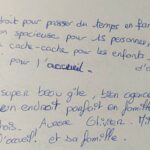 droit pour passer du temps en fam
on spacieuse pour 15 personnes,
cache-cache pour les enfants
pour l'accueil.
super beau gîte, bien agenc
en endroit parfait en famille
fois.
l'accueil. et sa famille.